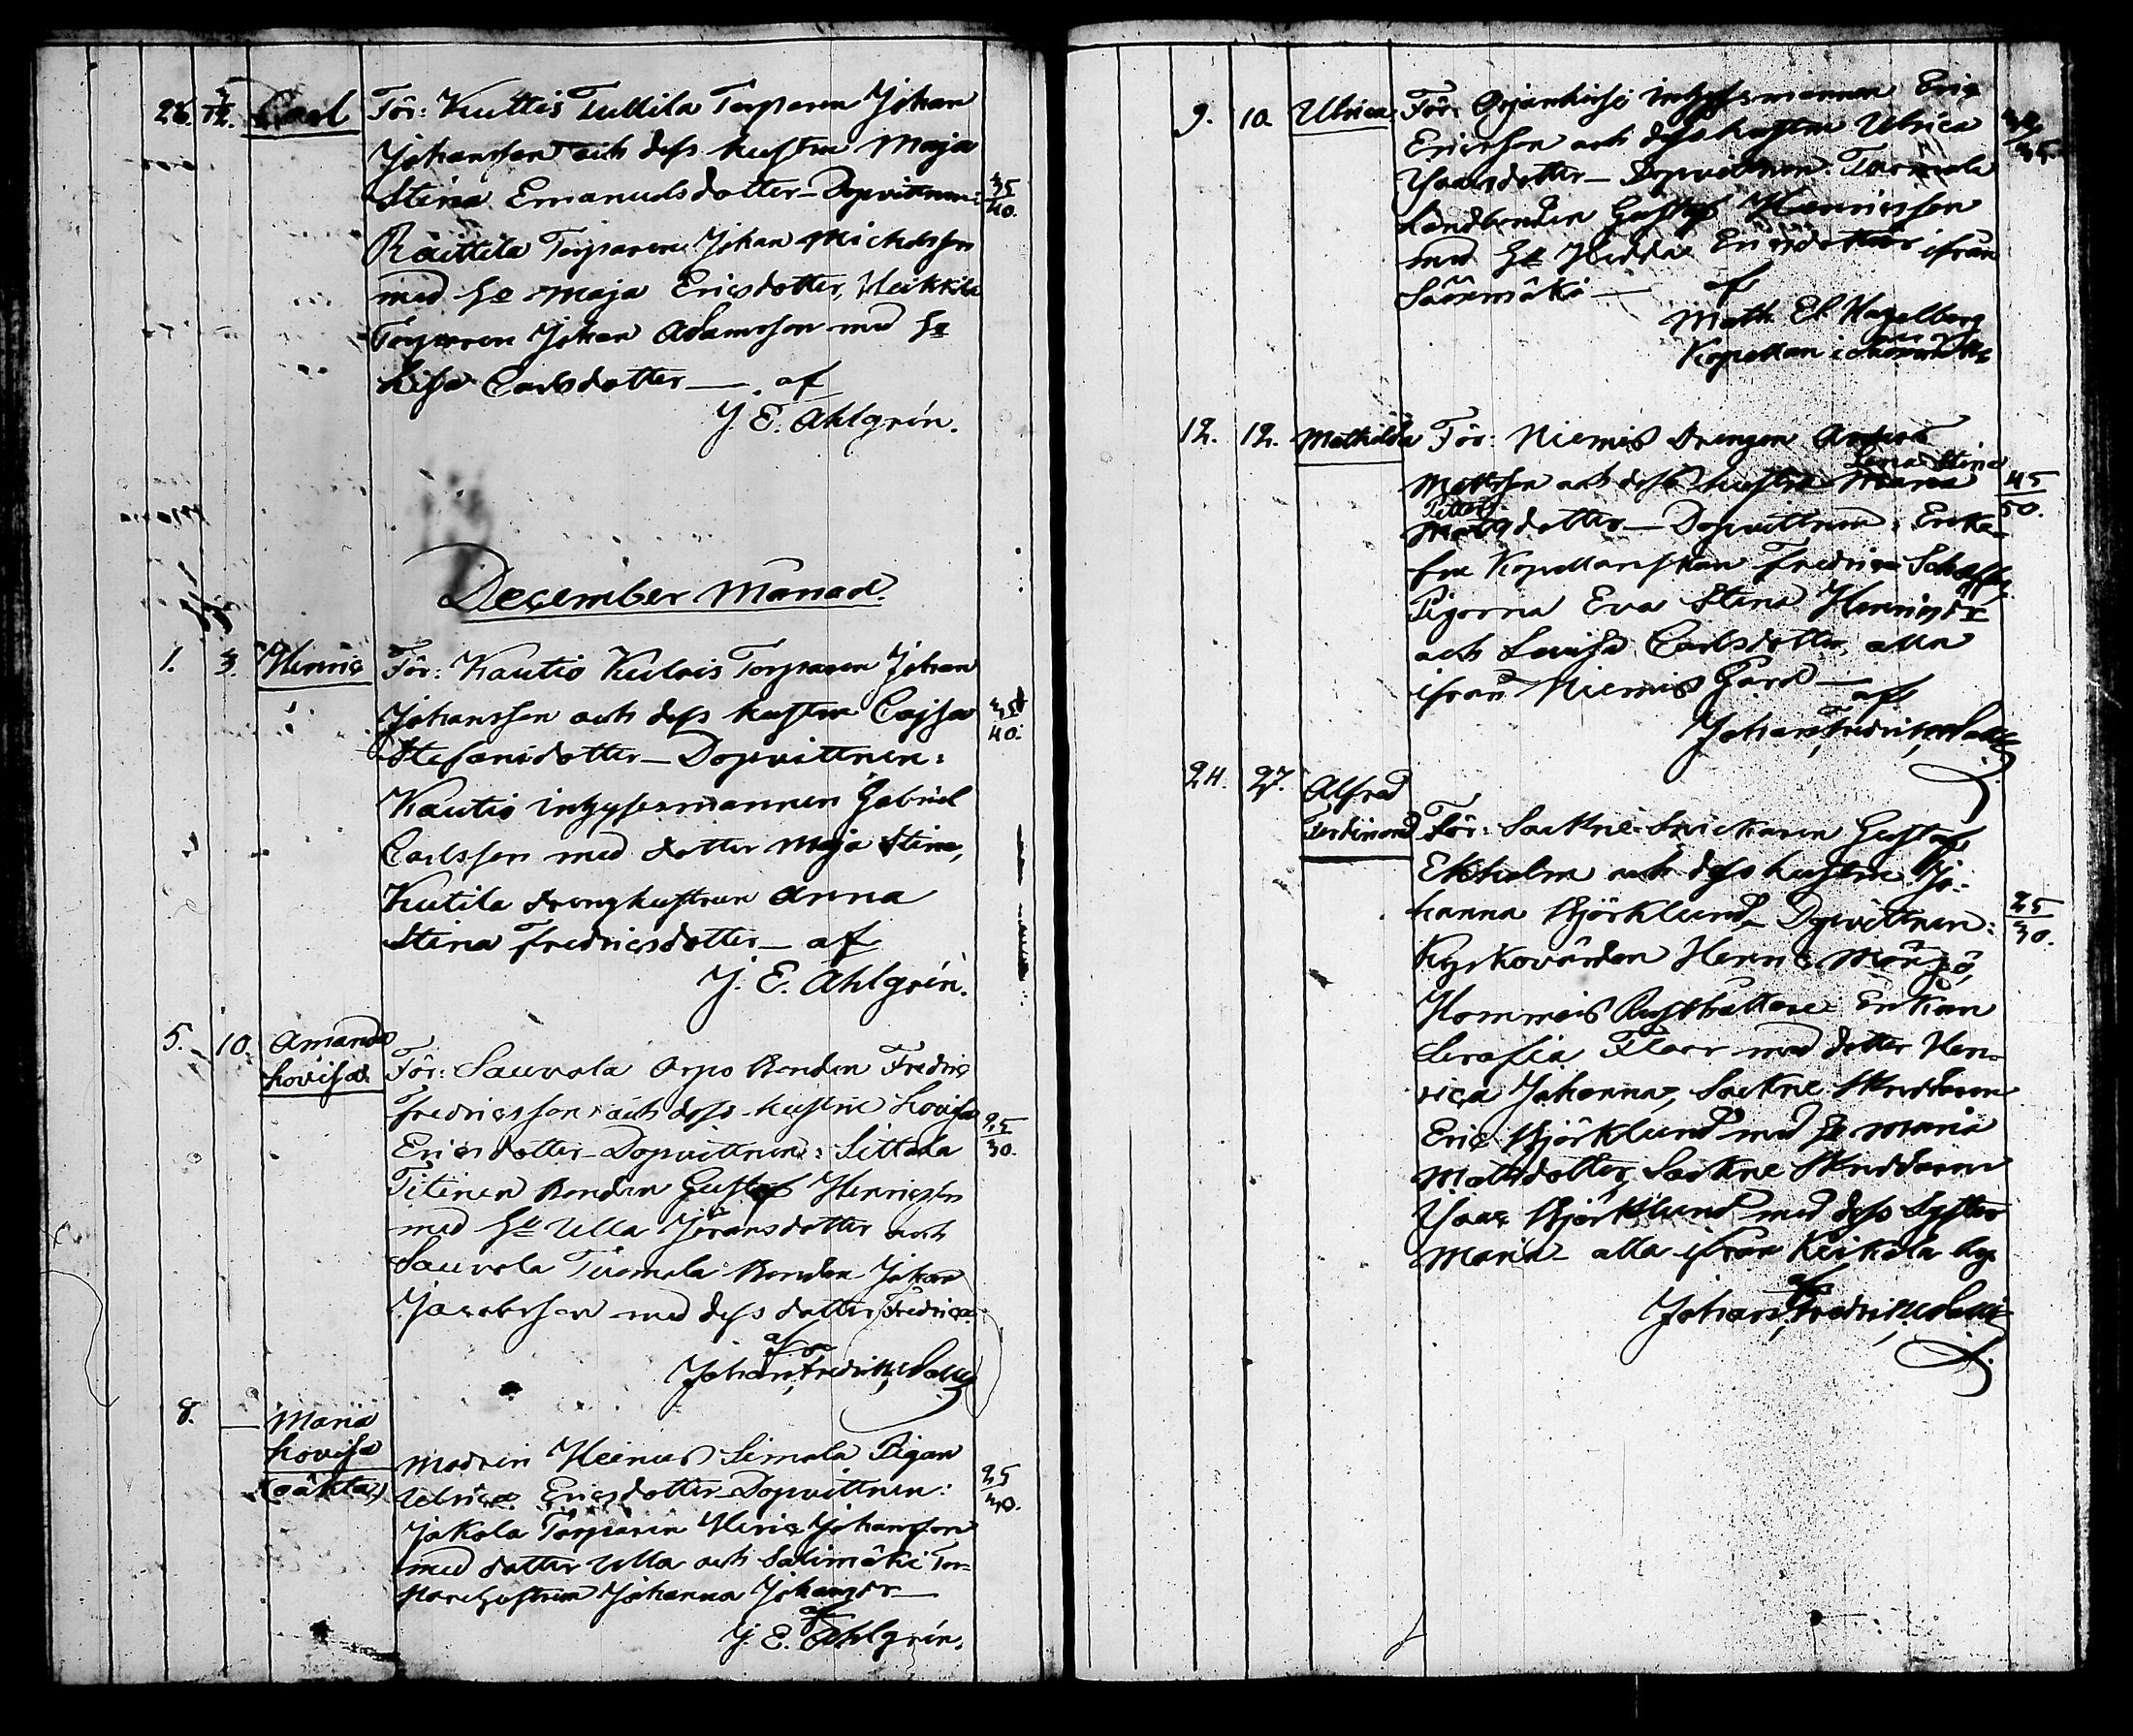 26. 2/12. Carl För: Kuttis Tullila Torparen Johan
Johansson och dess hustru Maja
Stina Emanuelsdotter – Dopvittnen: 35/40.
Raittila Torparen Johan Michelsson
med Ho Maja Ericsdotter, Heikkilä
Torparen Johan Adamsson med Ho
Lisa Carlsdotter — af
J. E. Ahlgrén.
December Månad.
1. 3. Henric För: Kautio Kulois Torparen Johan
Johansson och dess hustru Cajsa 35/40.
Stefansdotter – Dopvittnen:
Kautio inhysesmannen Gabriel
Carlsson med dotter Maja Stina,
Kutila drenghustrun Anna
Stina Fredricsdotter – af
J. E. Ahlgrén.
5. 10. Amanda
Lovisa. För: Sauvola Arpo Bonden Fredric
Fredricsson och dess hustru Lovisa
Ericsdotter – Dopvittnen: Sittala 25/30.
Titinen Bonden Gustaf Henricsson
med Ho Ulla Jöransdotter och
Sauvola Tuomola Bonden Johan
Jacobsson med dess dotter Fredrica.
af
Johan Fredrik
8. — Maria
Lovisa
(oäkta) Modren Heinus Simola Pigan
Ulrica Ericsdotter – Dopvittnen: 25/30.
Jakola Torparen Henric Johansson
med dotter Ulla och Salimäki Tor-
parehustrun Johanna Johansdr —
af
J. E. Ahlgrén.
9. 10. Ulrica För: inhysesmannen Eric
Ericsson och dess hustru Ulrica 30/35.
Isaacsdotter – Dopvittnen: Tuomola
Landbonden Gustaf Henricsson
med Ho Hedda Ericsdotter ifrån
Säärmäki — af
Math. El. Hagelberg
Kapellan i
12. 12. Mathilda För: Niemis Drengen Anders
Lena Stina
Mattsson och dess hustru Maria 45/50.
Petters-
Matsdotter – Dopvittnen: Enke-
fru Kapellanskan Fredrica
Pigorna Eva Stina Henricsdr
och Lovisa Carlsdotter, alla
ifrån Niemis Gård —
af
Johan Fredrik
24. 27. Alfred
Ferdinand För: Sackne Snickaren Gustaf
Ekholm och dess hustru Jo-
hanna Björklund – Dopvittnen: 25/30.
Kyrkovärden Henric
Hommais Rusthållare Enkan
Serafia Floor med dotter Hen-
rica Johanna, Sackne Skreddaren
Eric Björklund med Ho Maria
Matsdotter, Sackne Skreddaren
Isaac Björklund med dess Syster
Maria – alla ifrån Keikola by.
af
Johan Fredrik